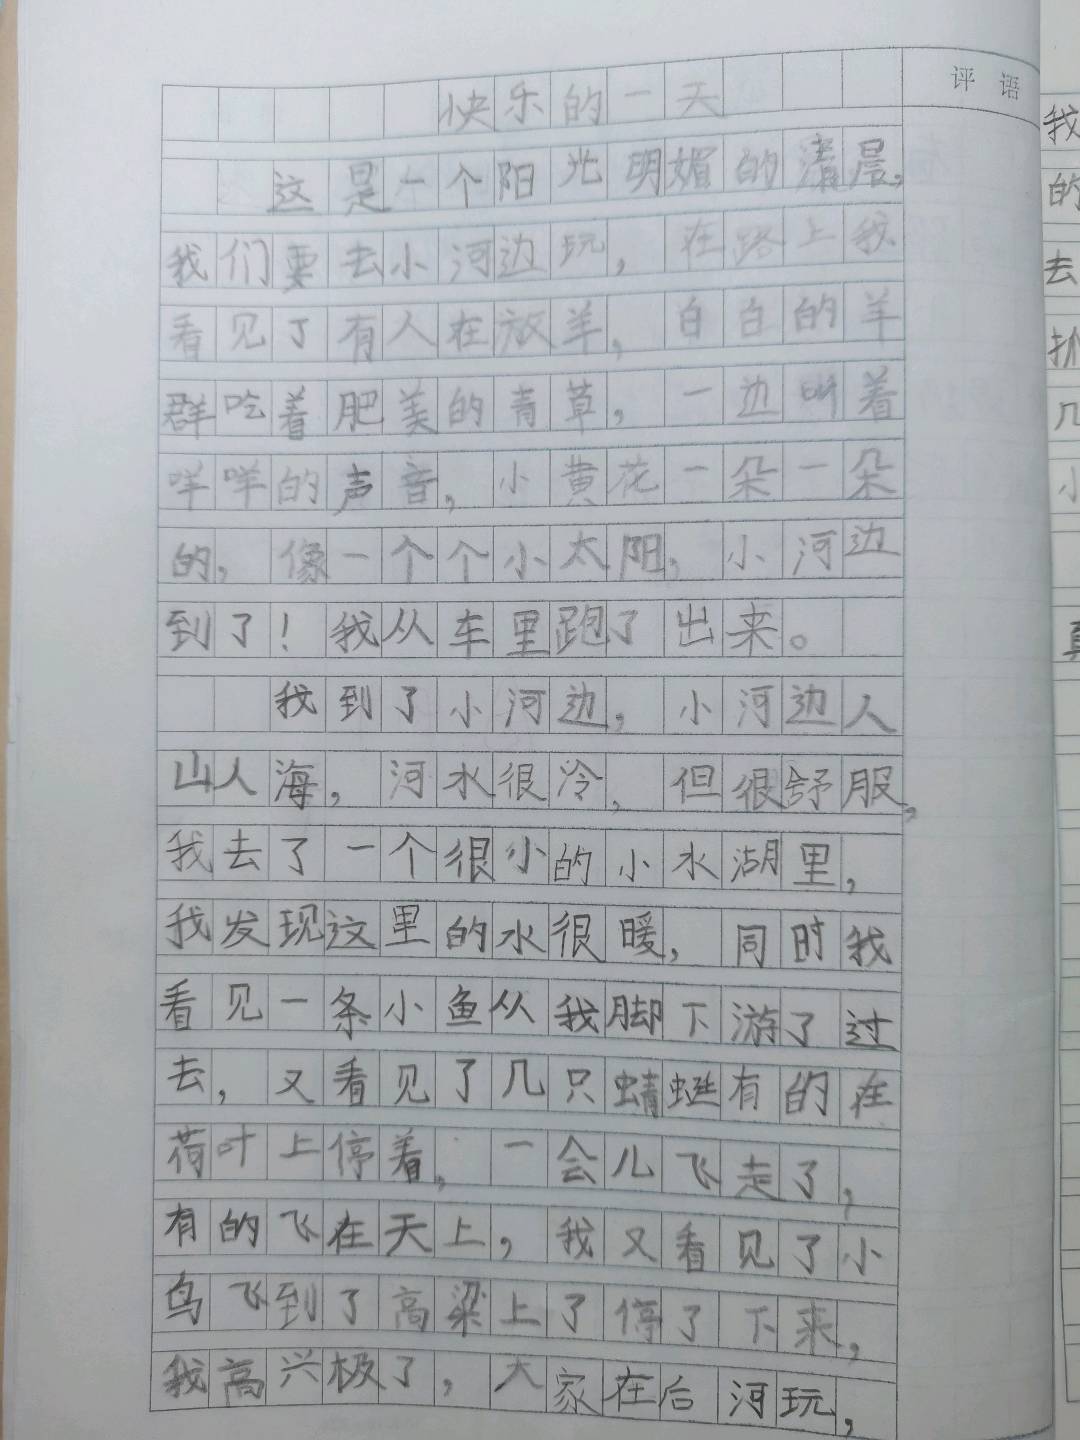 评语
快乐的一天
这是一个阳光明媚的清晨,
我们要去小河边玩,在路上我
看见了有人在放羊,白白的羊
群吃着肥美的青草,一边叫着
咩咩的声音,小黄花一朵一朵
的,像一个个小太阳,小河边
到了!我从车里跑了出来。
我到了小河边,小河边人
山人海,河水很冷,但很舒服,
我去了一个很小的小水湖里,
我发现这里的水很暖,同时我
看见一条小鱼从我脚下游了过
去,又看见了几只蜻蜓有的在
荷叶上停着,一会儿飞走了,
有的飞在天上,我又看见了小
鸟飞到了高粱上了停了下来,
我高兴极了,大家在后河玩,
我
的
去
几
小